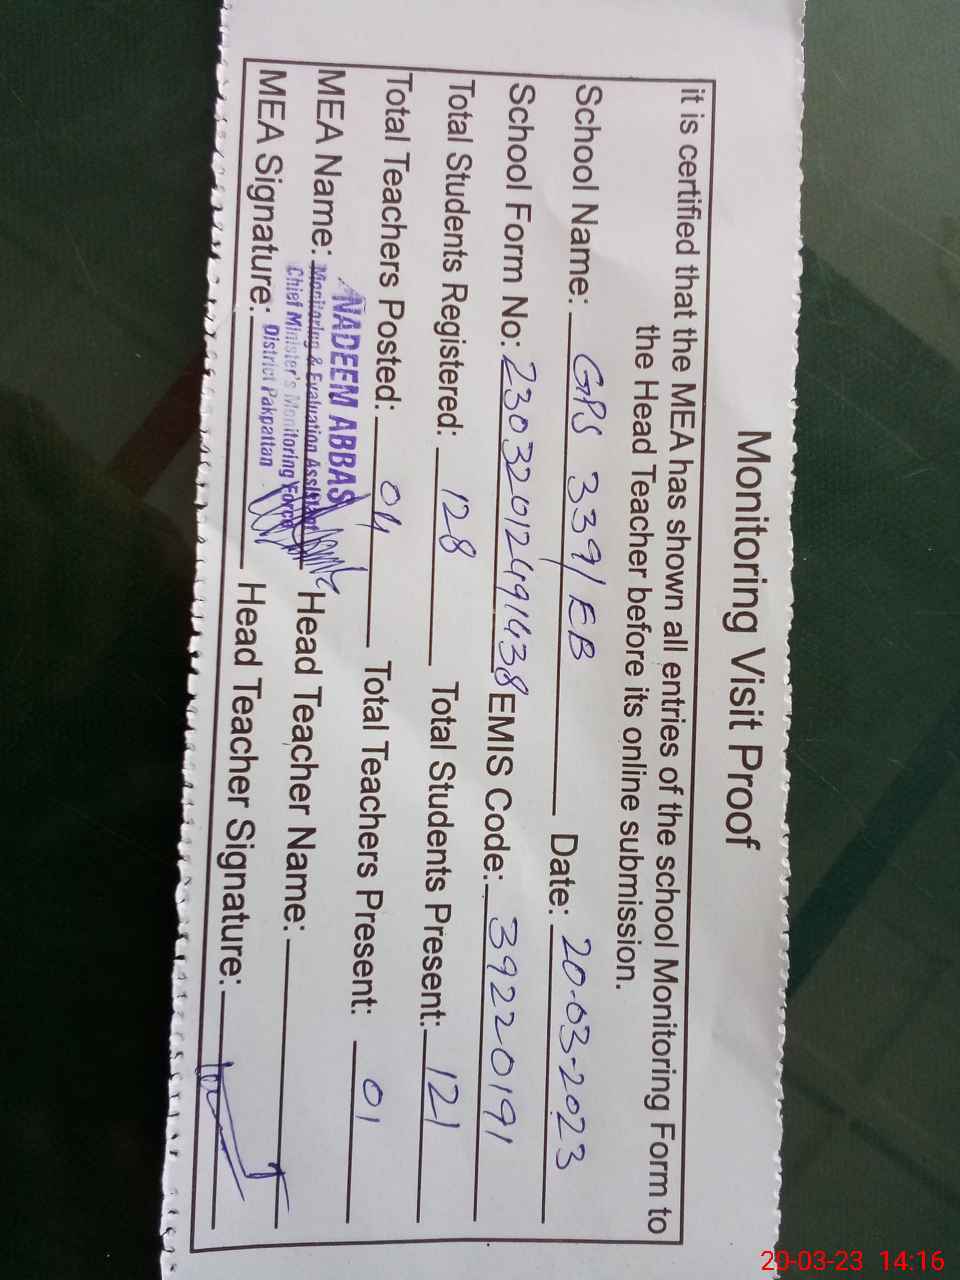 Monitoring Visit Proof
it is certified that the MEA has shown all entries of the school Monitoring Form to
the Head Teacher before its online submission.
School Name: GPS 339/EB Date: 20-03-2023
School Form No: 23032012491438 EMIS Code: 39220191
Total Students Registered: 128 Total Students Present: 121
Total Teachers Posted: 04 Total Teachers Present: 01
MEA Name: NADEEM ABBAS Head Teacher Name:
Monitoring & Evaluation Assistant
Chief Minister's Monitoring Force
District Pakpattan
MEA Signature: Head Teacher Signature:
20-03-23 14:16